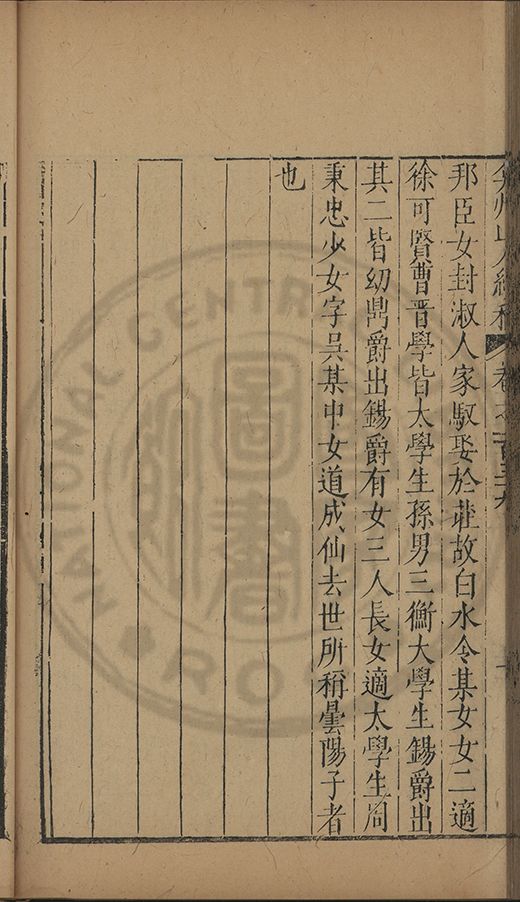 弇州山人續稿 卷之一百三十九
邦臣女封淑人家馭娶於莊故白水令某女女二適
徐可賢曹晋學皆太學生孫男三衡大學生錫爵出
其二皆幼鼎爵出錫爵有女三人長女適太學生周
秉忠少女字吳某中女道成仙去世所稱曇陽子者
也